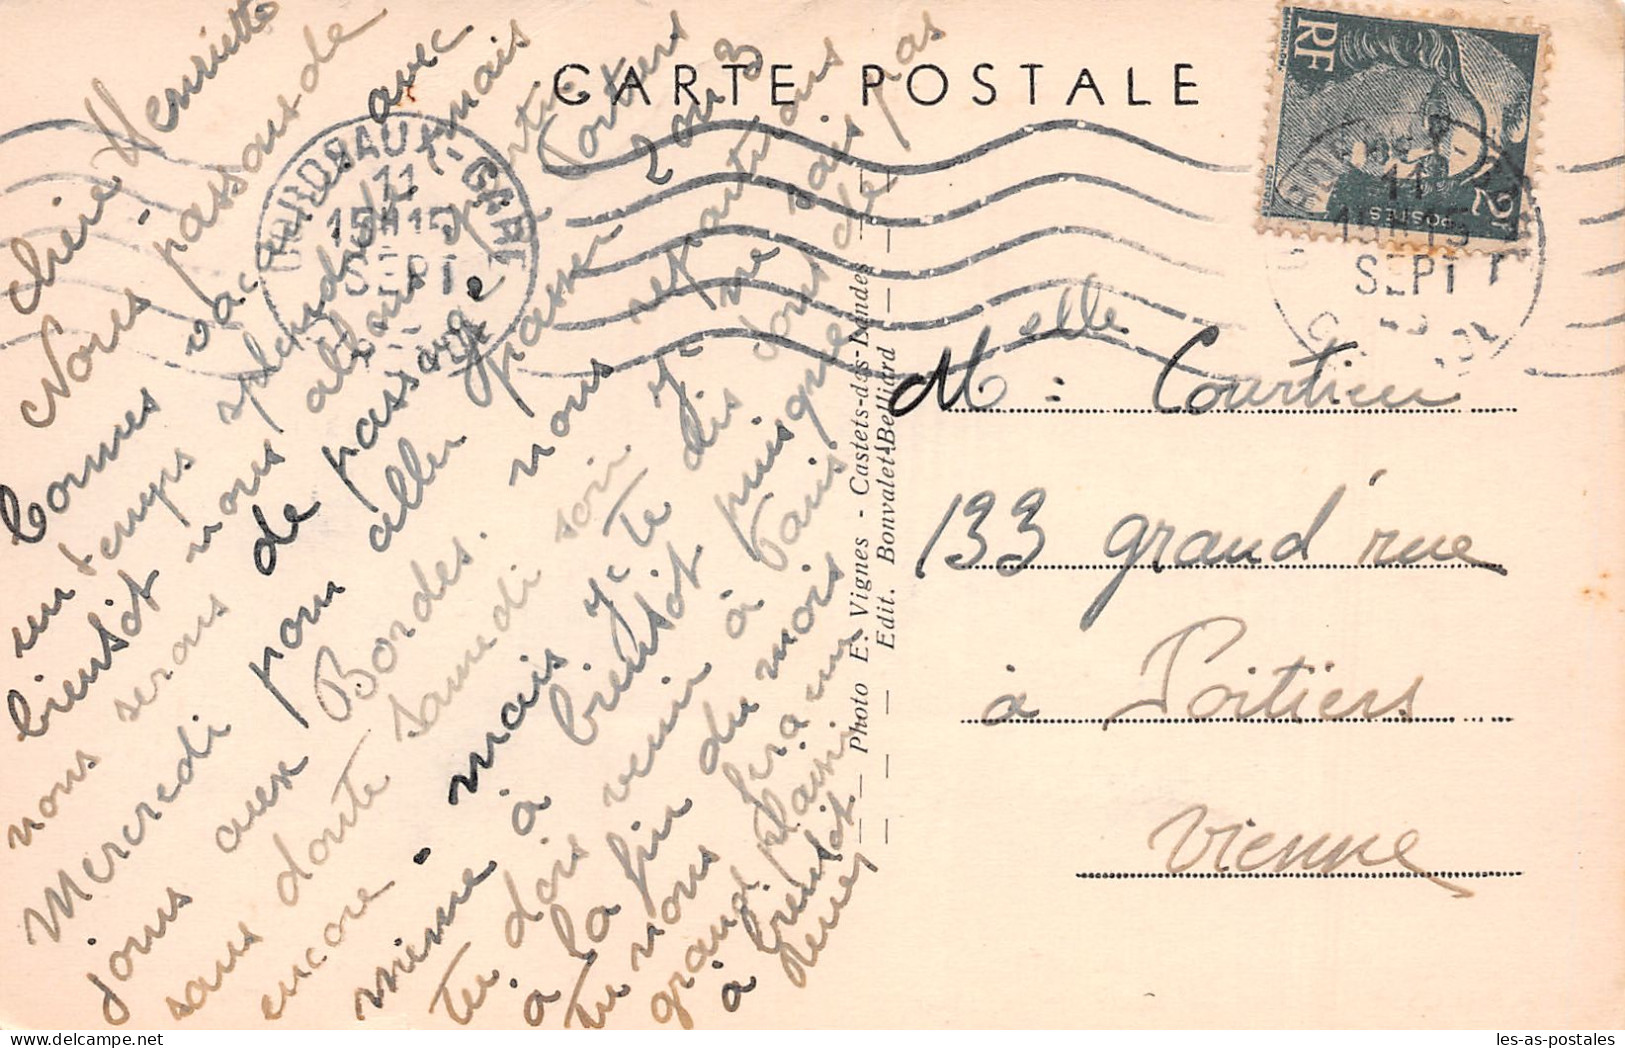 CARTE POSTALE
RF
POSTES
2F
BORDEAUX - GARE
11
15H15
SEPT
Chère Henriette
Nous passons de
bonnes vacances avec
un temps splendide mais
bientôt nous allons partir
nous serons de passage à Poitiers
Mercredi pour aller passer 2 ou 3
jours aux Bordes. nous repartirons
sans doute samedi soir je ne sais pas
encore mais je te dis donc de
même à bientôt puisque
tu dois venir à Paris
à la fin du mois
tu nous fera un
grand plaisir
à bientôt
Renée
Photo E. Vignes - Castets-des-Landes
Edit. Bonvalet-Belliard
Melle : Courtieu
133 grand'rue
à Poitiers
Vienne
les-as-postales